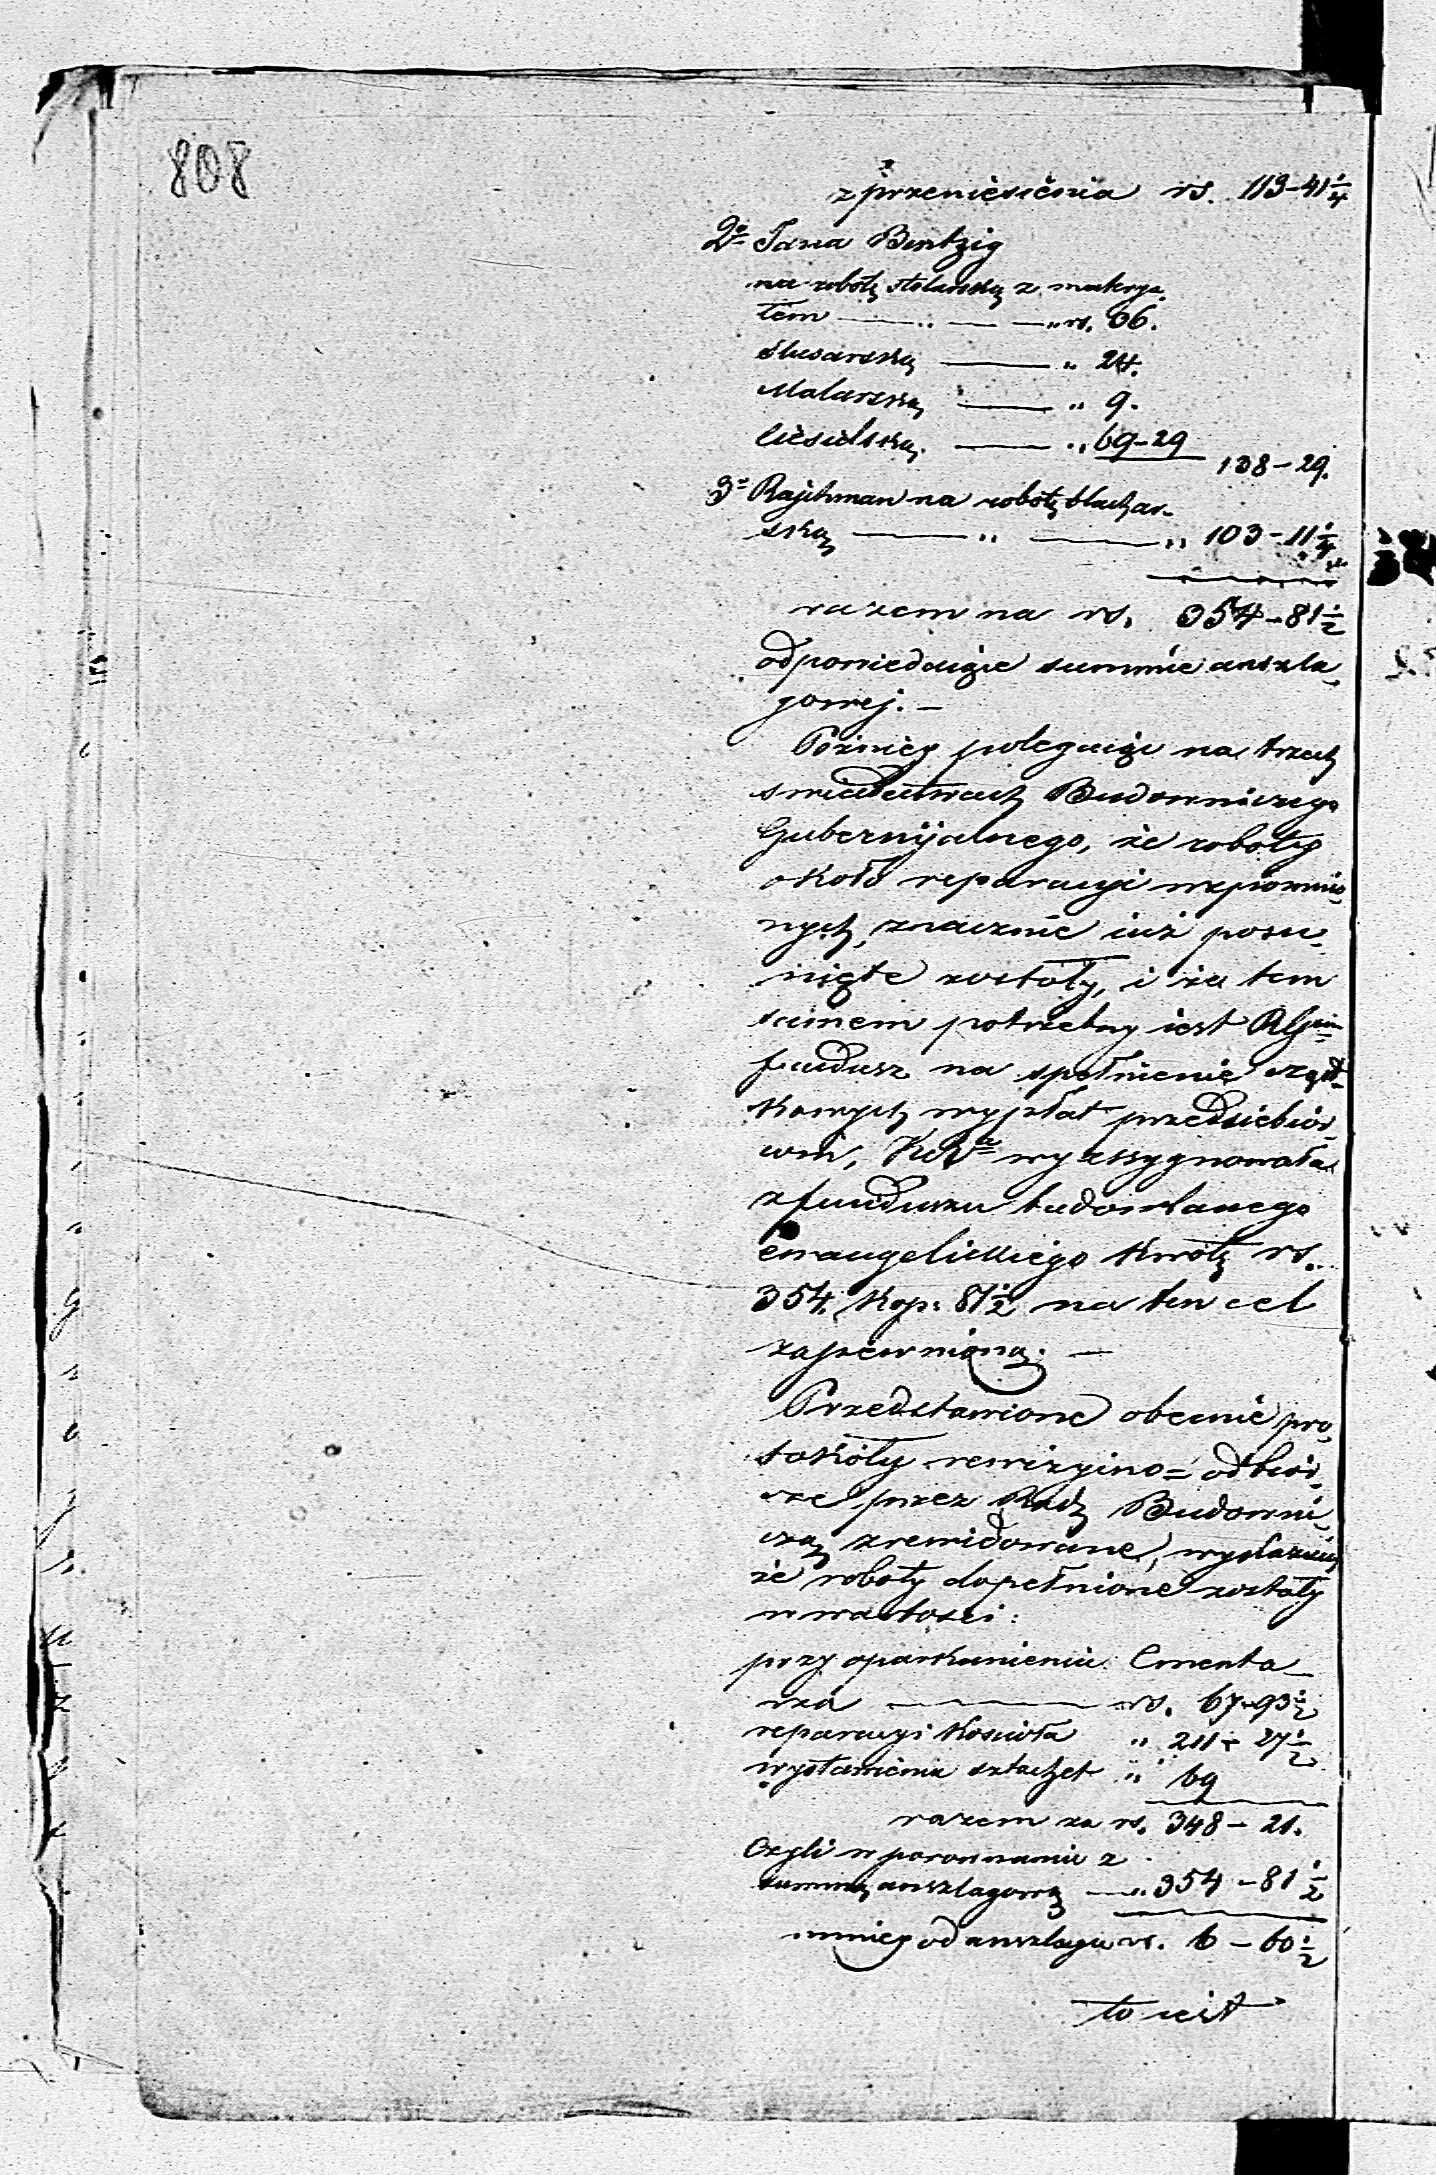 808
z przeniesienia rs. 113-41¼
2º Jana Bentzig
na robotę stolarską z materya-
łem — „ — — „ rs. 36.
ślusarską — „ 24.
Malarską — „ 9.
Ciesielską. — „ 69-29
138-29.
3º Rajchman na robotę blachar-
ską — „ — „ 103-11¼
razem na rs. 354-81½
odpowiedaiące summie anszla-
gowej. —
Pózniey polegaiąc na trzech
swiadectwach Budowniczego
Gubernijalnego, że roboty
około reparacyi wzpiomnio-
nych, znacznie iuż posu-
nięte zostały, i że tem
samem potrzebny iest
fundusz na spełnienie cząst-
kowych wypłat przedsiebior-
com, wyassygnowała
z funduszu budowlanego
ewangelickiego kwotę rs.
354, kop: 81½ na ten cel
zapewnioną. —
Przedstawione obecnie pro-
tokóły rewizyino=odbior-
cze przez Radę Budowni-
czą zrewidowane, wykazuią
że roboty dopełnione zostały
w wartości:
przy oparkanieniu Cmenta-
rza — rs. 67-93½
reparacyi Kościoła „ 211-27½
wystawienia sztachet „ 69
razem za rs. 348-21.
Czyli w porownaniu z
summą anszlagową — „ 354-81½
mniey od anszlagu rs. 6-60½
to iest